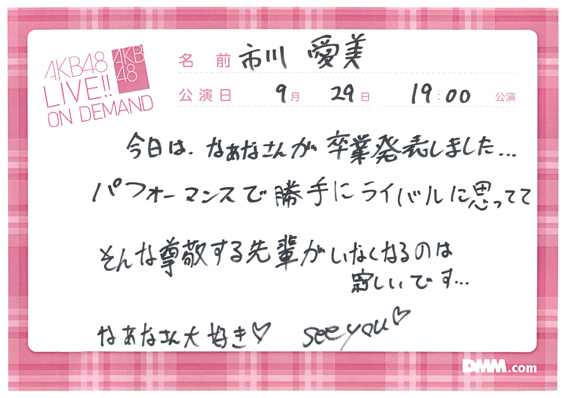 AKB48
LIVE!!
ON DEMAND
AKB
48
名前 市川 愛美
公演日 9月 29日 19:00 公演
今日は、なぁなさんが卒業発表しました...
パフォーマンスで勝手にライバルに思ってて
そんな尊敬する先輩がいなくなるのは
寂しいです...
なぁなさん大好き♡ see you♡
DMM.com